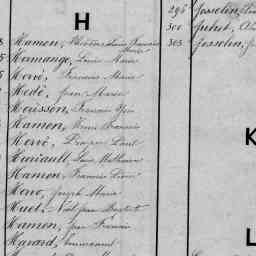 H
Hamon, Théodore Louis François
Marie
Hermange, Louis Marie
Hervé, François Marie
Hédé, Jean Marie
Houisson, François Yves
Hamon, René François
Hervé, Prosper Paul
Huriault, Louis Mathurin
Hamon, François Léon
Heno, Joseph Marie
Huet, Noël Jean Baptiste
Hamon, Jean François
Havard, Emmanuel
296 Josselin
300 Juhel
303 Josselin
K
L